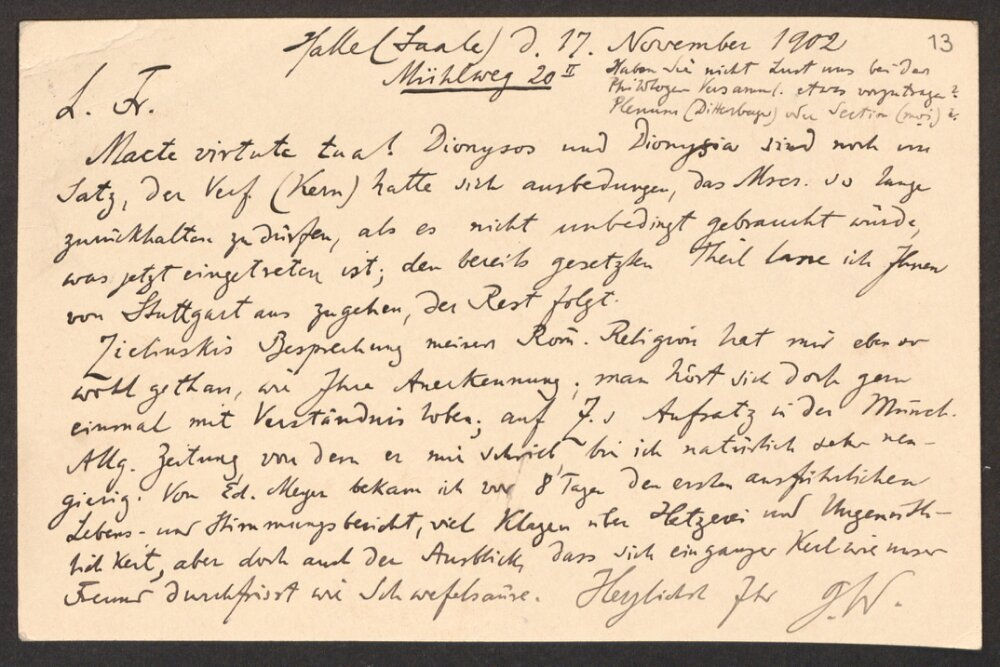 Halle (Saale) d. 17. November 1902
13
Mühlweg 20 II
Haben Sie nicht Lust uns bei der
Philologen Versamml. etwas vorzutragen?
Plenum (Dittenberger) oder Section (moi)?
L. Fr.
Macte virtute tua! Dionysos und Dionysia sind noch im
Satz, der Verf. (Kern) hatte sich ausbedungen, das Mscr. so lange
zurückhalten zu dürfen, als es nicht unbedingt gebraucht würde,
was jetzt eingetreten ist; den bereits gesetzten Theil lasse ich Ihnen
von Stuttgart aus zugehen, der Rest folgt.
Zielinskis Besprechung meiner Röm. Religion hat mir ebenso
wohl gethan, wie Ihre Anerkennung; man hört sich doch gern
einmal mit Verständnis loben; auf Z.s Aufsatz in der Münch.
Allg. Zeitung, von dem er mir schrieb, bin ich natürlich sehr neu-
gierig. Von Ed. Meyer bekam ich vor 8 Tagen den ersten ausführlichen
Lebens- und Stimmungsbericht, viel Klagen über Hetzerei und Ungemüth-
lichkeit, aber doch auch der Ausblick, dass sich ein ganzer Kerl wie unser
Freund durchfrisst wie Schwefelsäure. Herzlichst Ihr G.W.